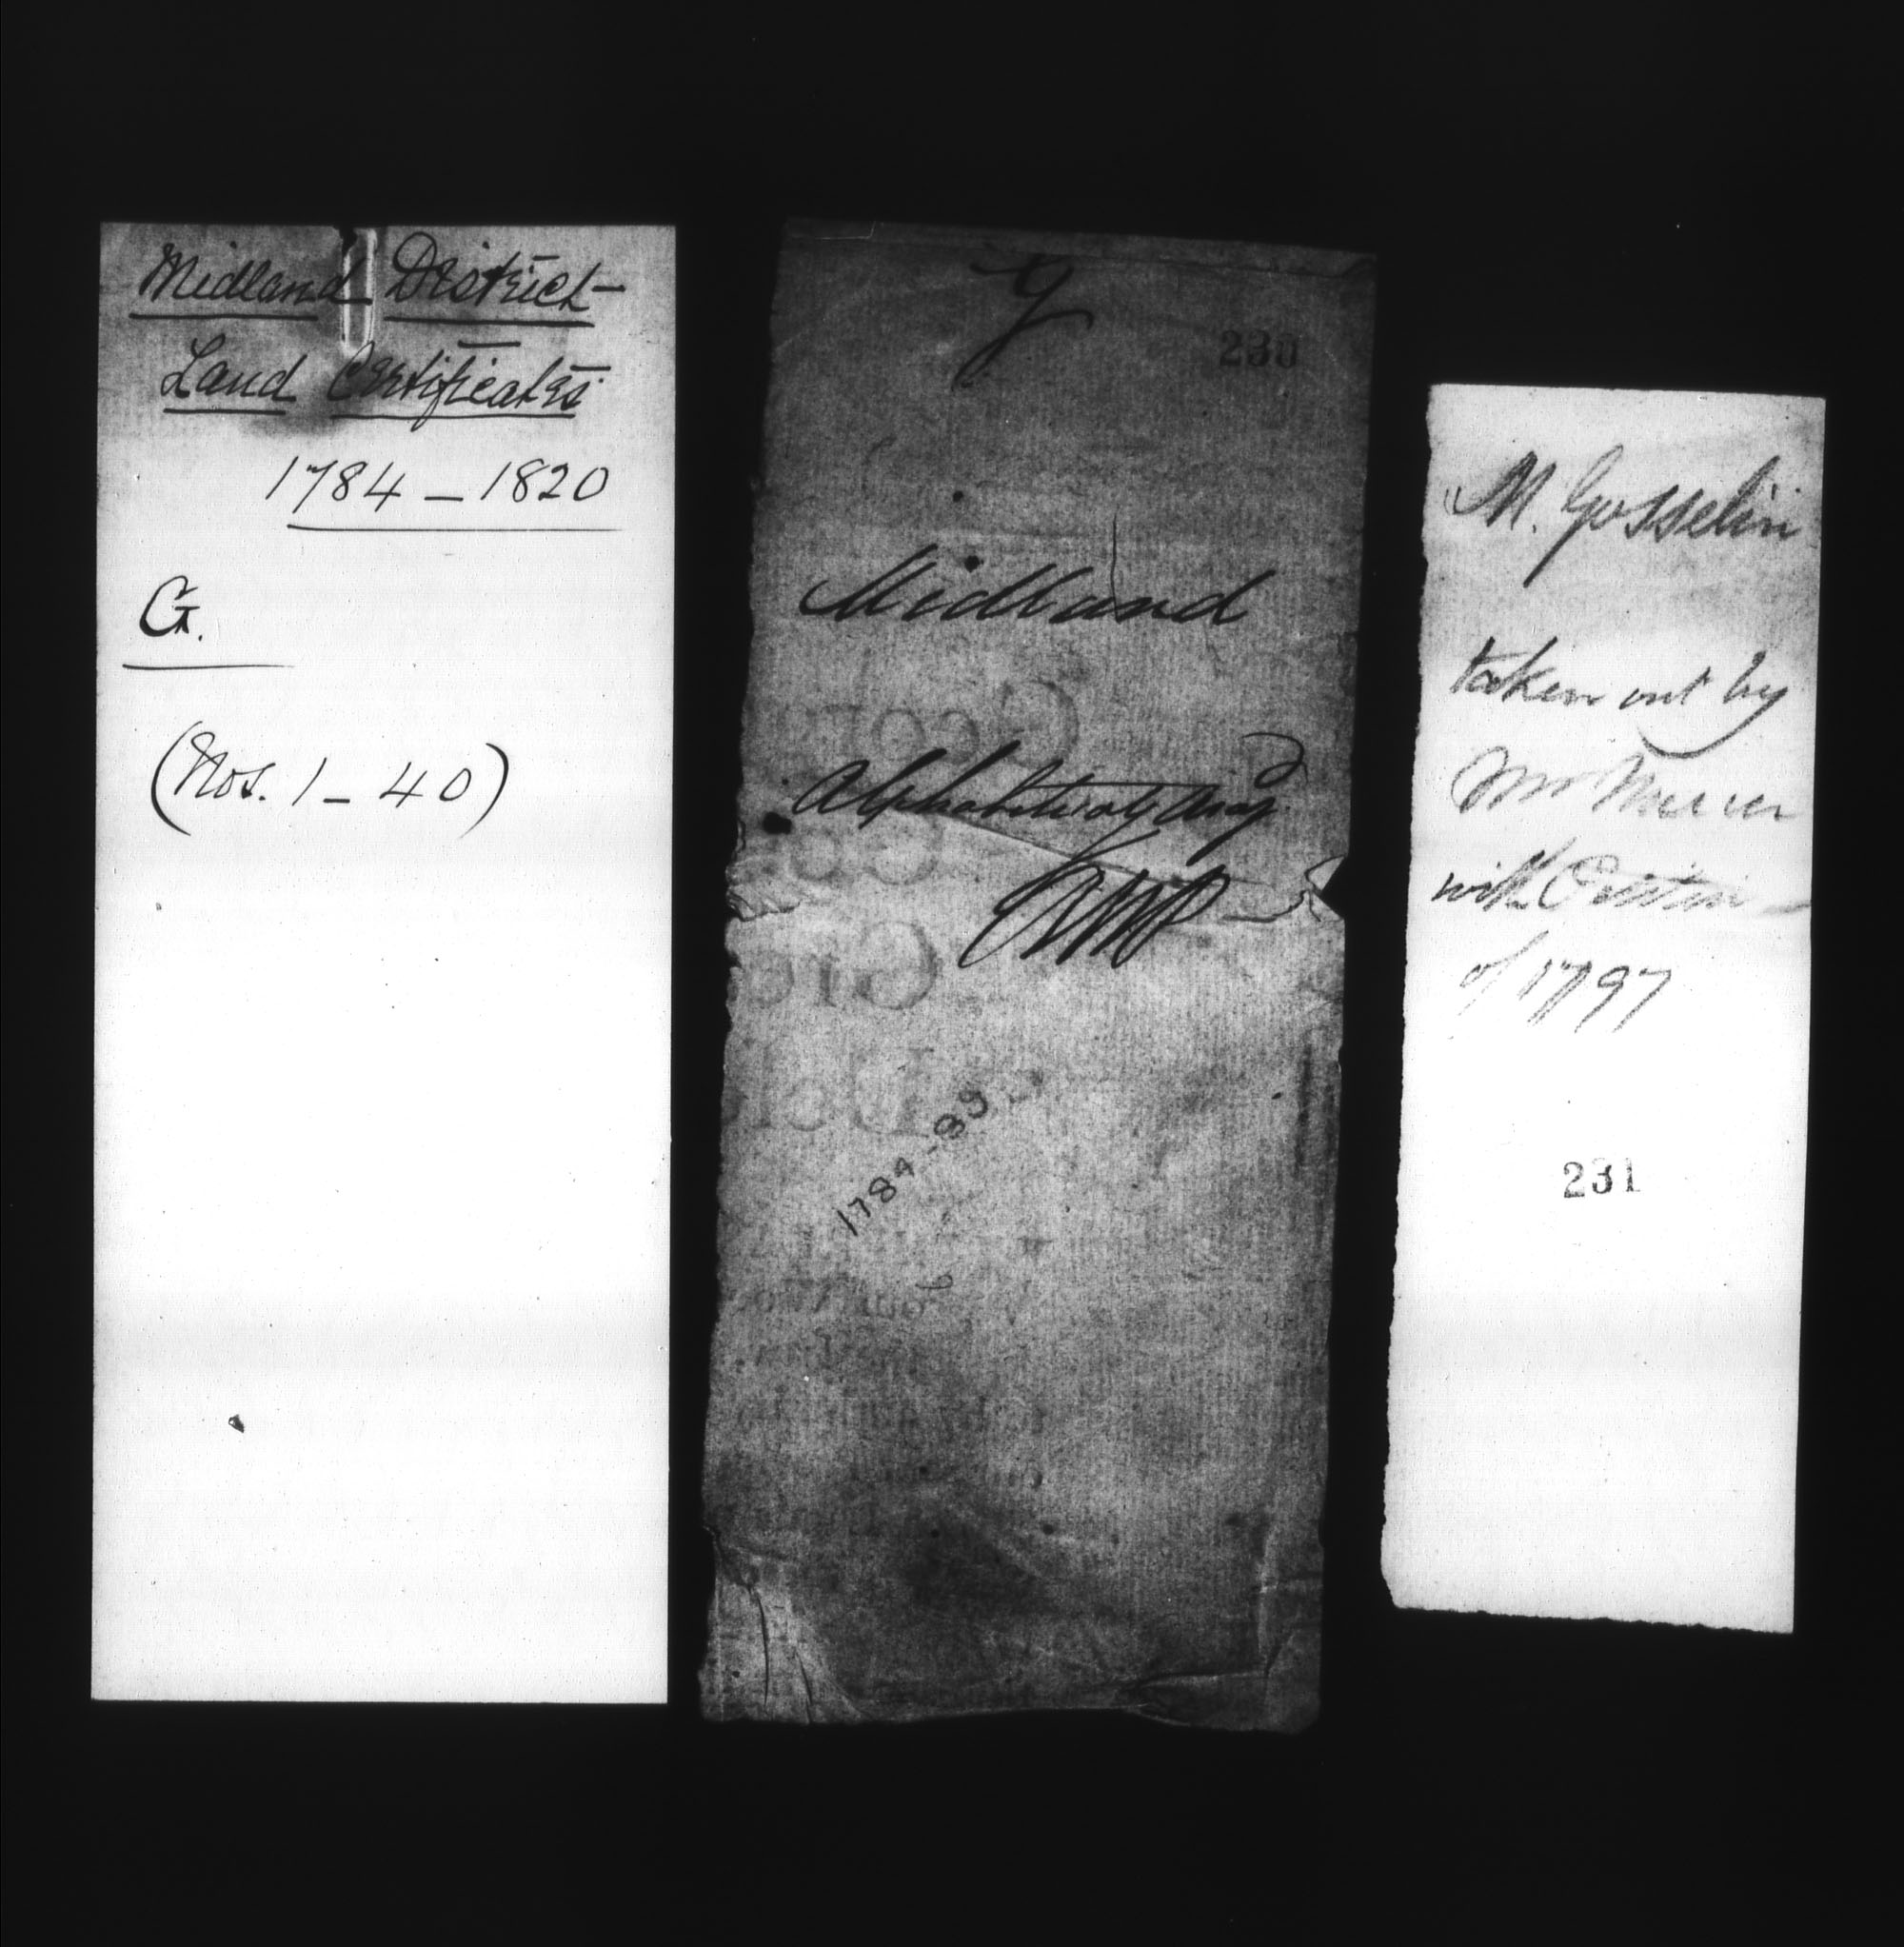 Midland District
Land Certificates
1784 - 1820
G.
(Nos. 1 - 40)
G
230
Midland
Alphabetically
1784 - 89
M. Gosselin
taken out by
Mr
with
of 1797
231